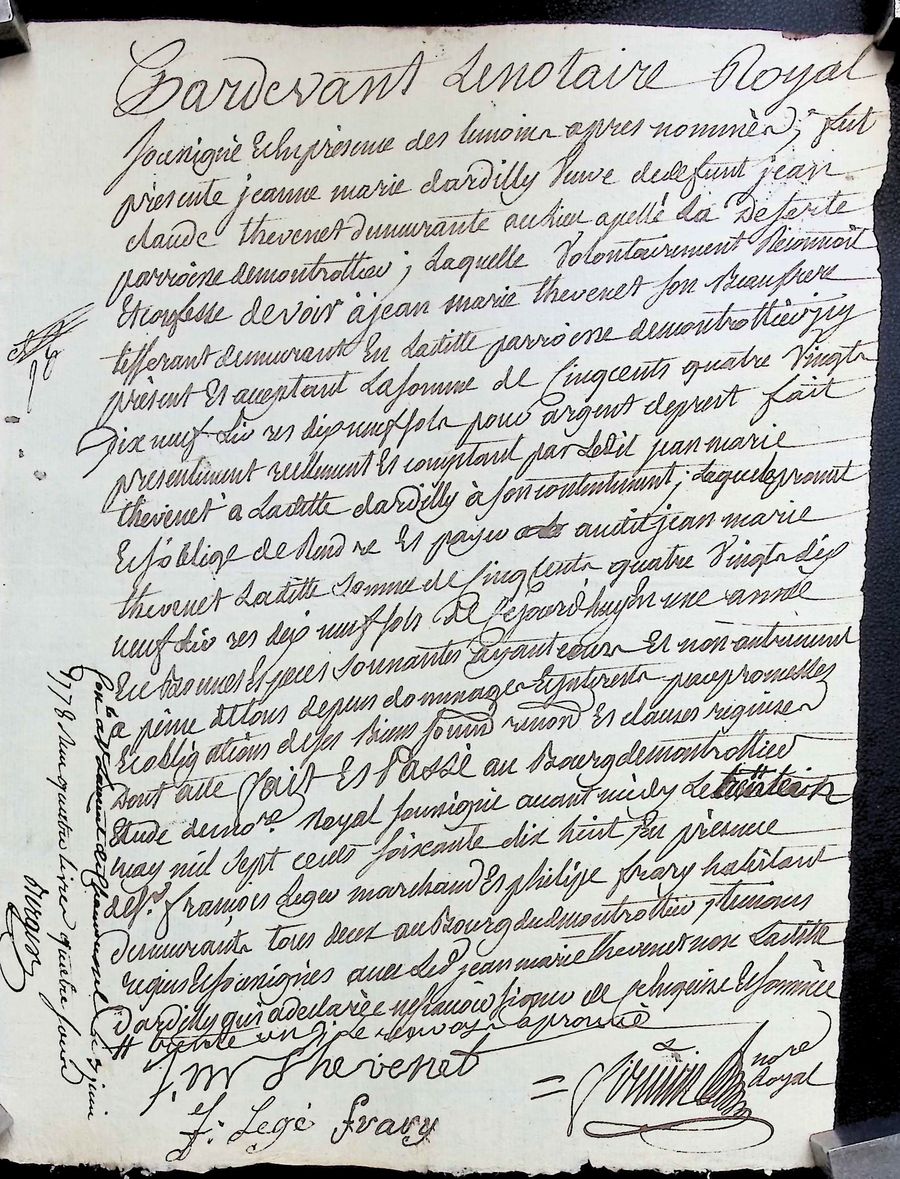 Pardevant Le notaire Royal
sousigné Et En présence des témoins apres nommés ; fut
présente jeanne marie dardilly veuve de defunt jean
claude thevenet demeurante au lieu apellé La Deserte
parroisse de montrottier ; Laquelle volontairement Reconnoit
Et confesse devoir à jean marie thevenet son Beaufrere
tisserant demeurant En Laditte parroisse de montrottier jcy
présent Et aceptant La somme de Cinqcents quatre vingts
Dix neuf Livres dix neuf sols pour argent de prest fait
presentement reellement Et comptant par Ledit jean marie
thevenet à Laditte dardilly à son contentement ; Laquelle promet
Et s'oblige de Rendre Et payer audit jean marie
thevenet Laditte Somme de Cinq Cents quatre vingts dix
neuf Livres dix neuf sols De Cejourd'huy En une année
En Bonnes Especes sonnantes ayant cours Et non autrement
a peine de tous depens dommages Et interets par promesses
Et obligations de ses Biens soumis renond Et clauses requises
Dont acte fait Et Passé au Bourg de montrottier
Etude de no.re Royal sousigné avant midy Le
may mil sept cents soixante dix huit En présence
de s.r françois Leger marchand Et philipe frary habitant
demeurants tous deux au Bourg dudit montrottier ; témoins
requis Et sousignés avec Led. jean marie thevenet non Laditte
Dardilly qui a declarée ne sçavoir signer de Ce Enquise Et sommée
# trente un ; Le renvoy aprouvé
j. m Thevenet
f. Legé frary
= no.re
Royal
Con.lé à St Laurent de Chamousset Le 3 juin
1778 Reçu quatre livres quatre sous